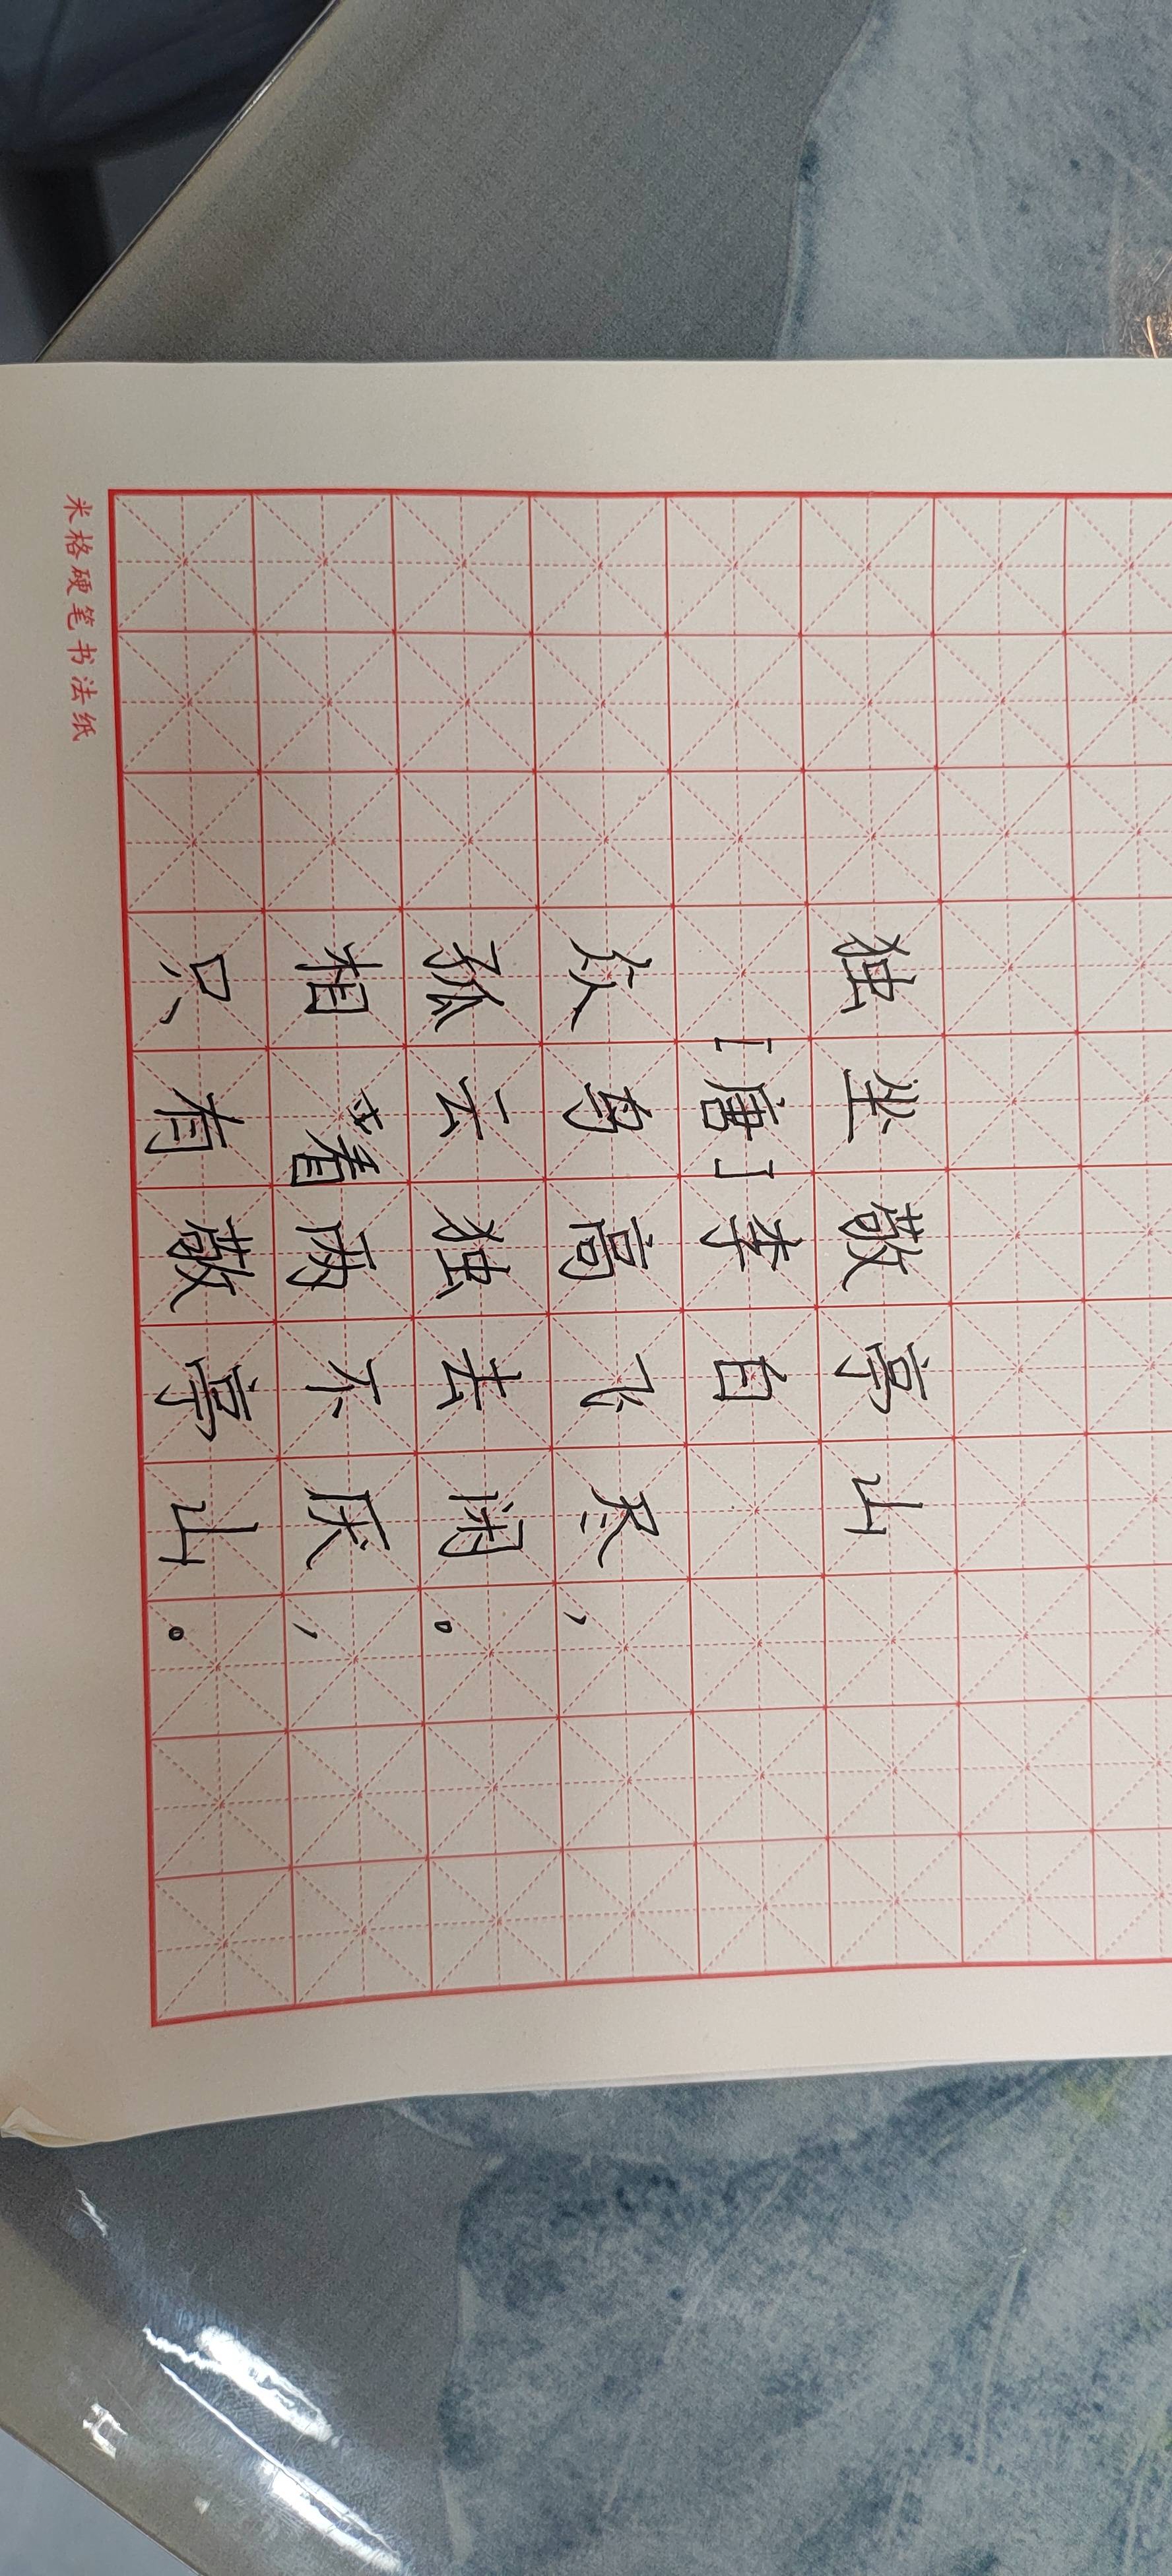 独坐敬亭山
[唐]李白
众鸟高飞尽，
孤云独去闲。
相看两不厌，
只有敬亭山。
米格硬笔书法纸